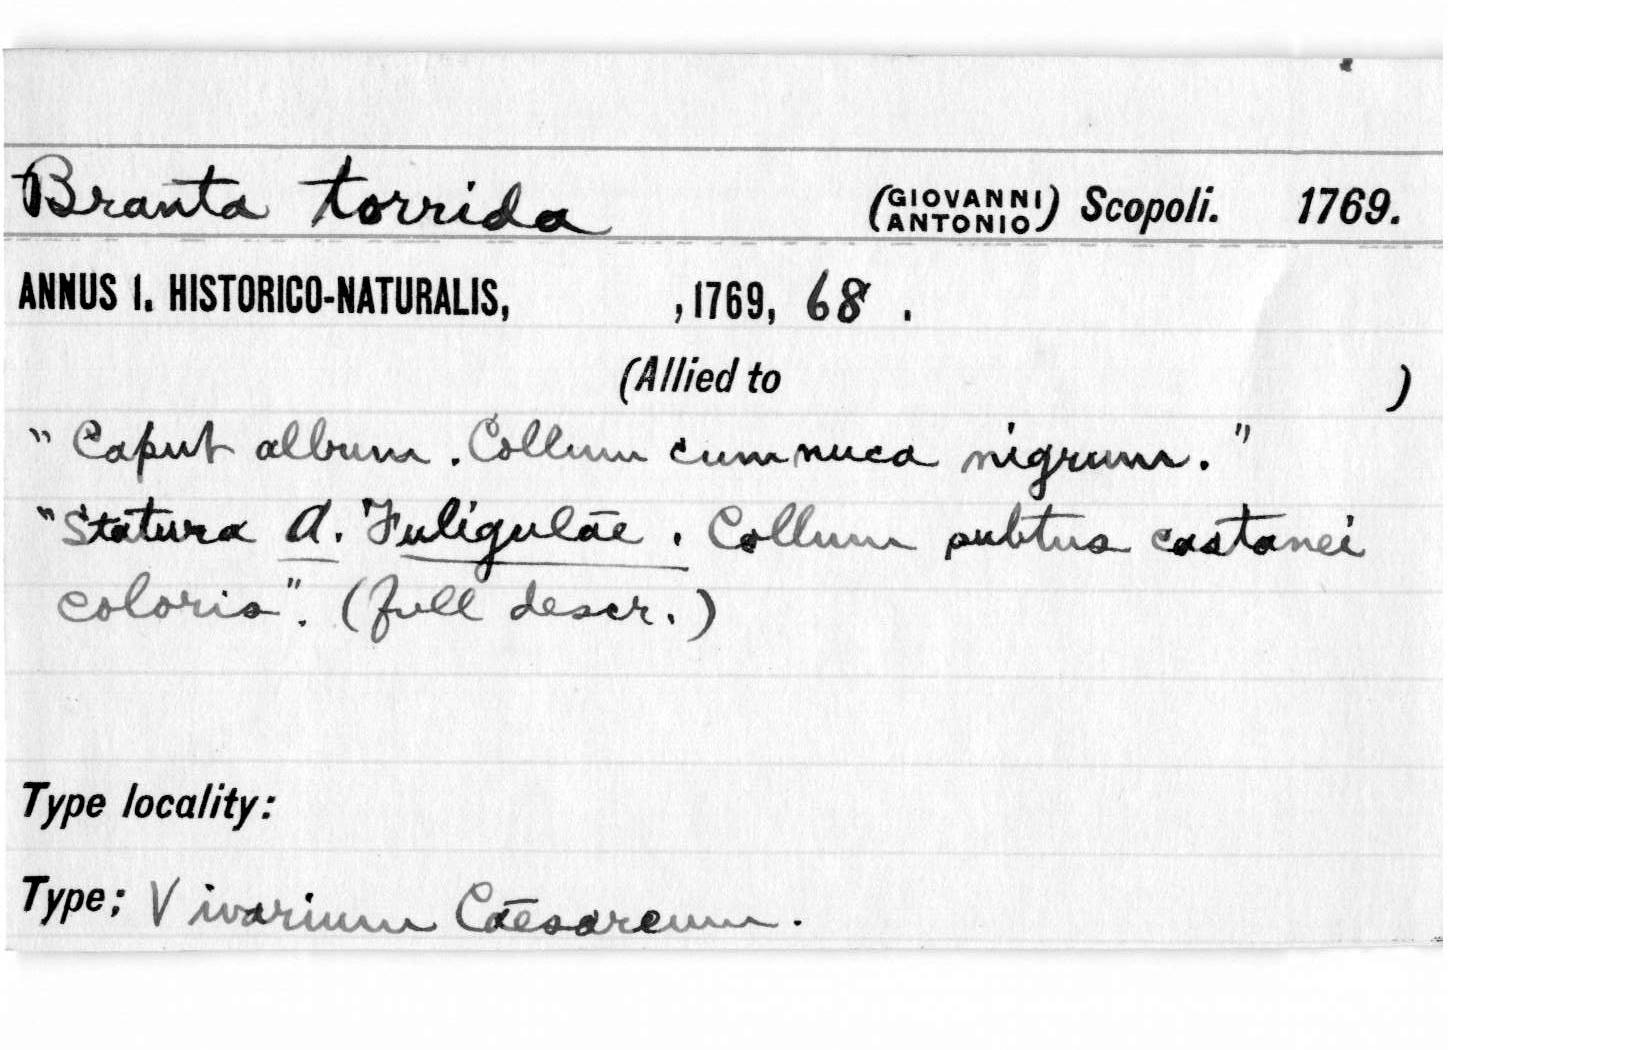 Branta torrida (GIOVANNI ANTONIO) Scopoli. 1769.
ANNUS I. HISTORICO-NATURALIS, , 1769, 68 .
(Allied to )
"Caput album. Collum cum nuca nigrum."
"Statura A. Fuligulae. Collum subtus castanei
coloris". (full descr.)
Type locality:
Type; Vivarium Caesareum.